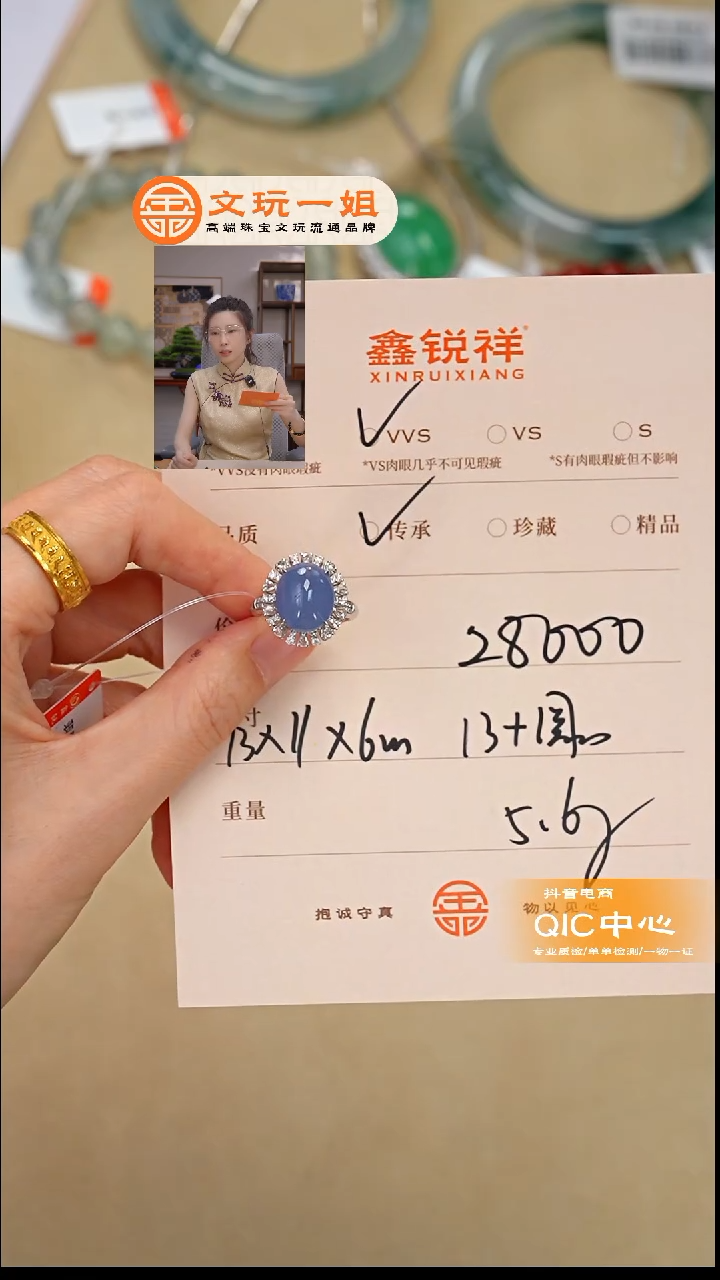 文玩一姐
高端珠宝文玩流通品牌
鑫锐祥
XINRUIXIANG
VVS VS S
*VVS没有肉眼瑕疵 *VS肉眼几乎不可见瑕疵 *S有肉眼瑕疵但不影响
品质 传承 珍藏 精品
28000
寸 13×11×6m 13+
重量 5.6g
抱诚守真 物以见心
抖音电商
QIC中心
专业质检/单单检测/一物一证